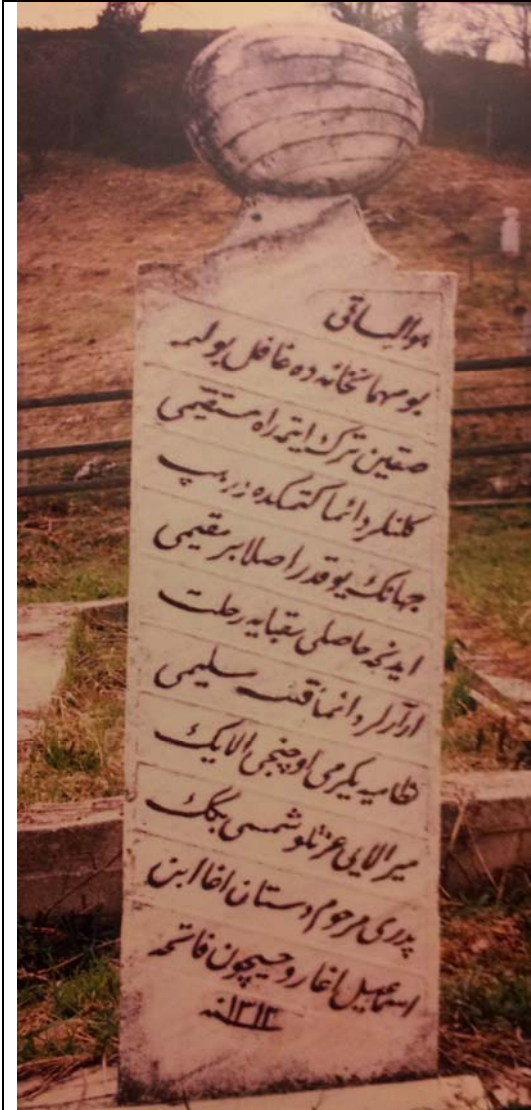 هوالباقی
بو مهمانخانه ده غافل بولمه
صقین ترك ایتمه راه مستقیمی
كلنلر دائما كتمكده در هپ
جهانك یوقدر اصلا بر مقیمی
ایدنجه حاصلی عقبایه رحلت
ارارلر دائما قلب سلیمی
نظامیه یكرمی اوچنجی الایك
میرالایی عزتلو شمسی بكك
پدری مرحوم دستان اغا ابن
اسماعیل اغا روحیچون فاتحه
سنه ١٣١٣